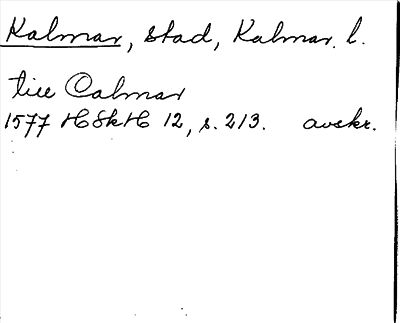 Kalmar, stad, Kalmar l.
till Calmar
1577 HSkH 12, s. 213. avskr.